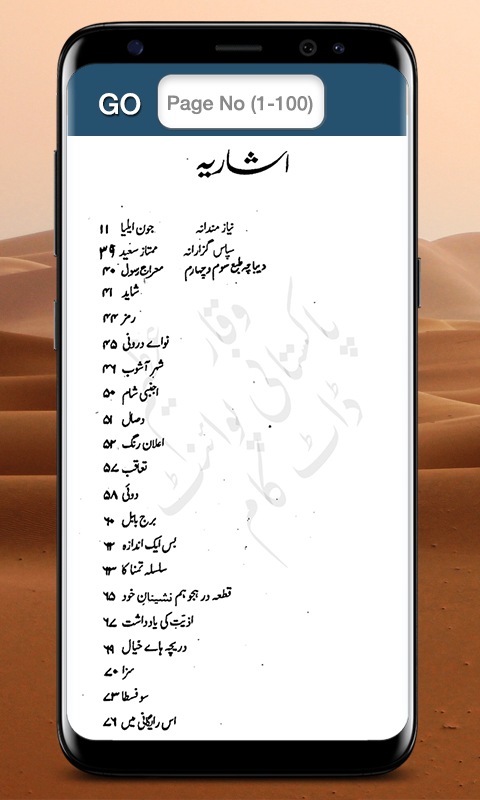 GO Page No (1-100)
اشاریہ
نیاز مندانہ جون ایلیا ۱۱
سپاس گزارانہ ممتاز سعید ۳۹
دیباچہ طبع سوم و چہارم معراج رسول ۴۰
شاید ۴۱
رمز ۴۴
نوائے درونی ۴۵
شہر آشوب ۴۶
اجنبی شام ۵۰
وصال ۵۱
اعلان رنگ ۵۲
تعاقب ۵۷
دوئی ۵۸
برج بابل ۶۰
بس ایک اندازہ ۶۲
سلسلہ تمنا کا ۶۳
قطعہ در ہجو ہم نشینانِ خود ۶۵
اذیّت کی یادداشت ۶۷
دریچہ ہائے خیال ۶۹
سزا ۷۰
سوفسطا ۷۳
اس رایگانی میں ۷۶
وقار عظیم
پاکستانی پوائنٹ
ڈاٹ کام